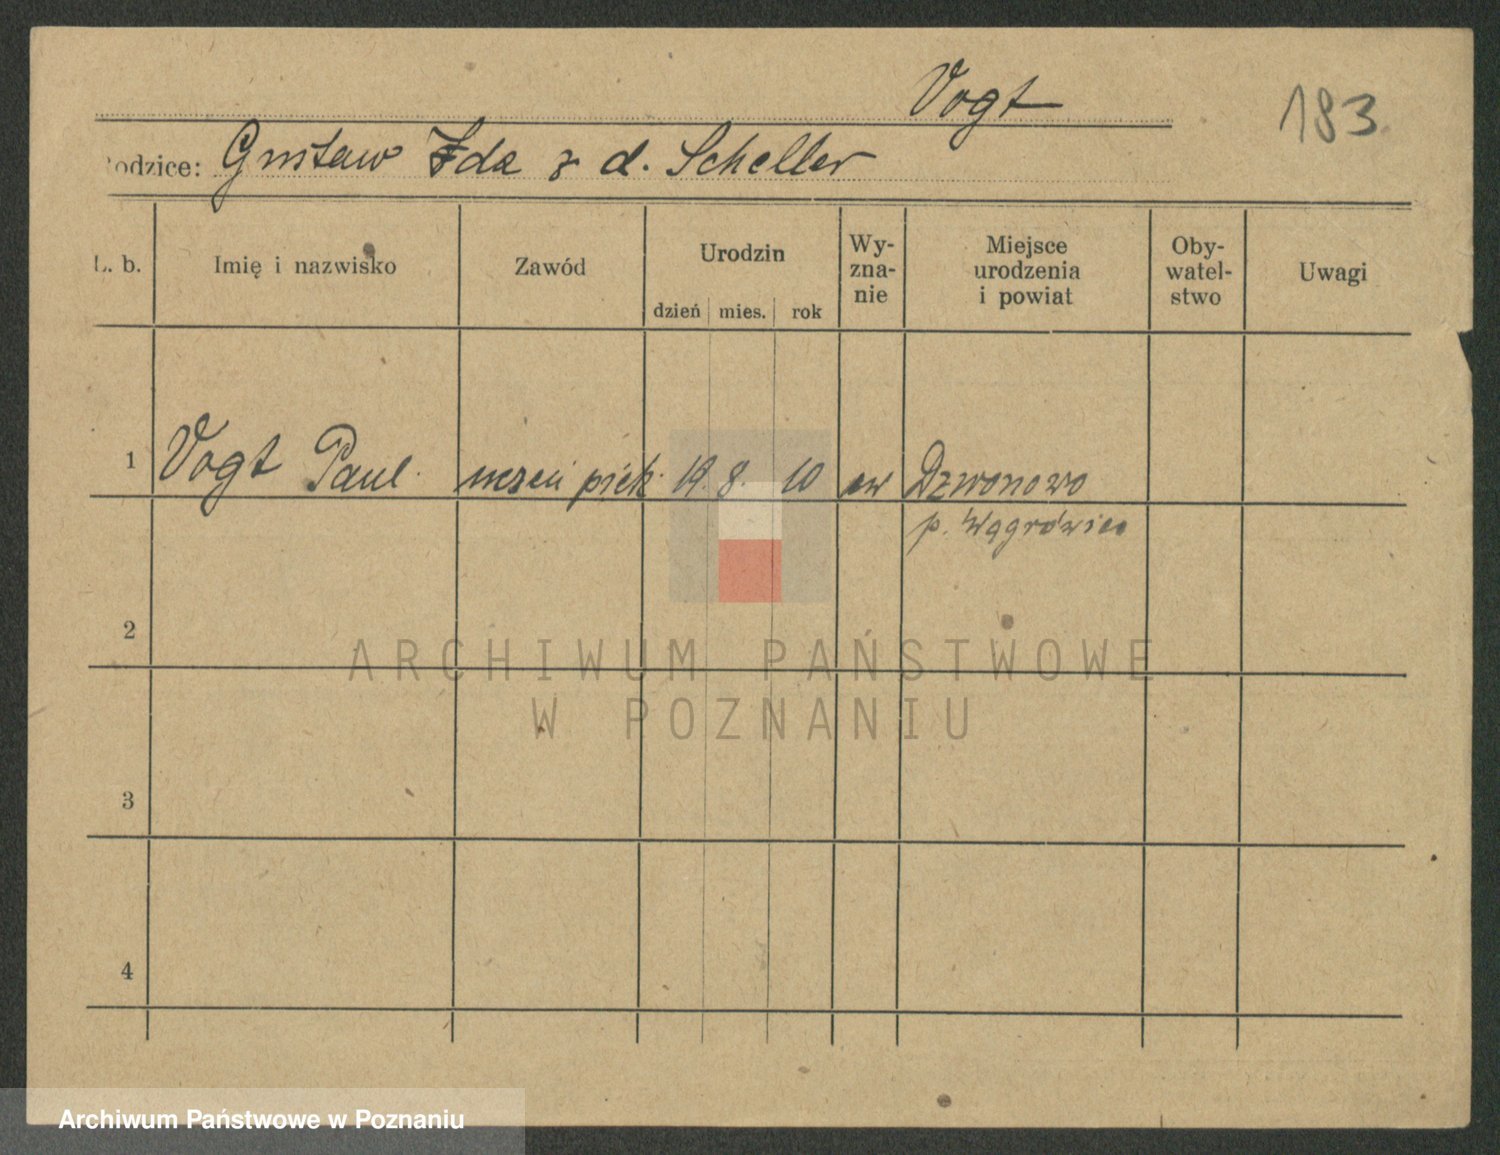 Vogt
183
Rodzice: Gustaw Ida z d. Scheller
L. b. Imię i nazwisko Zawód Urodzin dzień mies. rok Wy-zna-nie Miejsce urodzenia i powiat Oby-watel-stwo Uwagi
1 Vogt Paul. uczeń piek. 19. 8. 10 ew Dzwonowo
p. Wągrówiec
2
3
4
ARCHIWUM PAŃSTWOWE
W POZNANIU
Archiwum Państwowe w Poznaniu